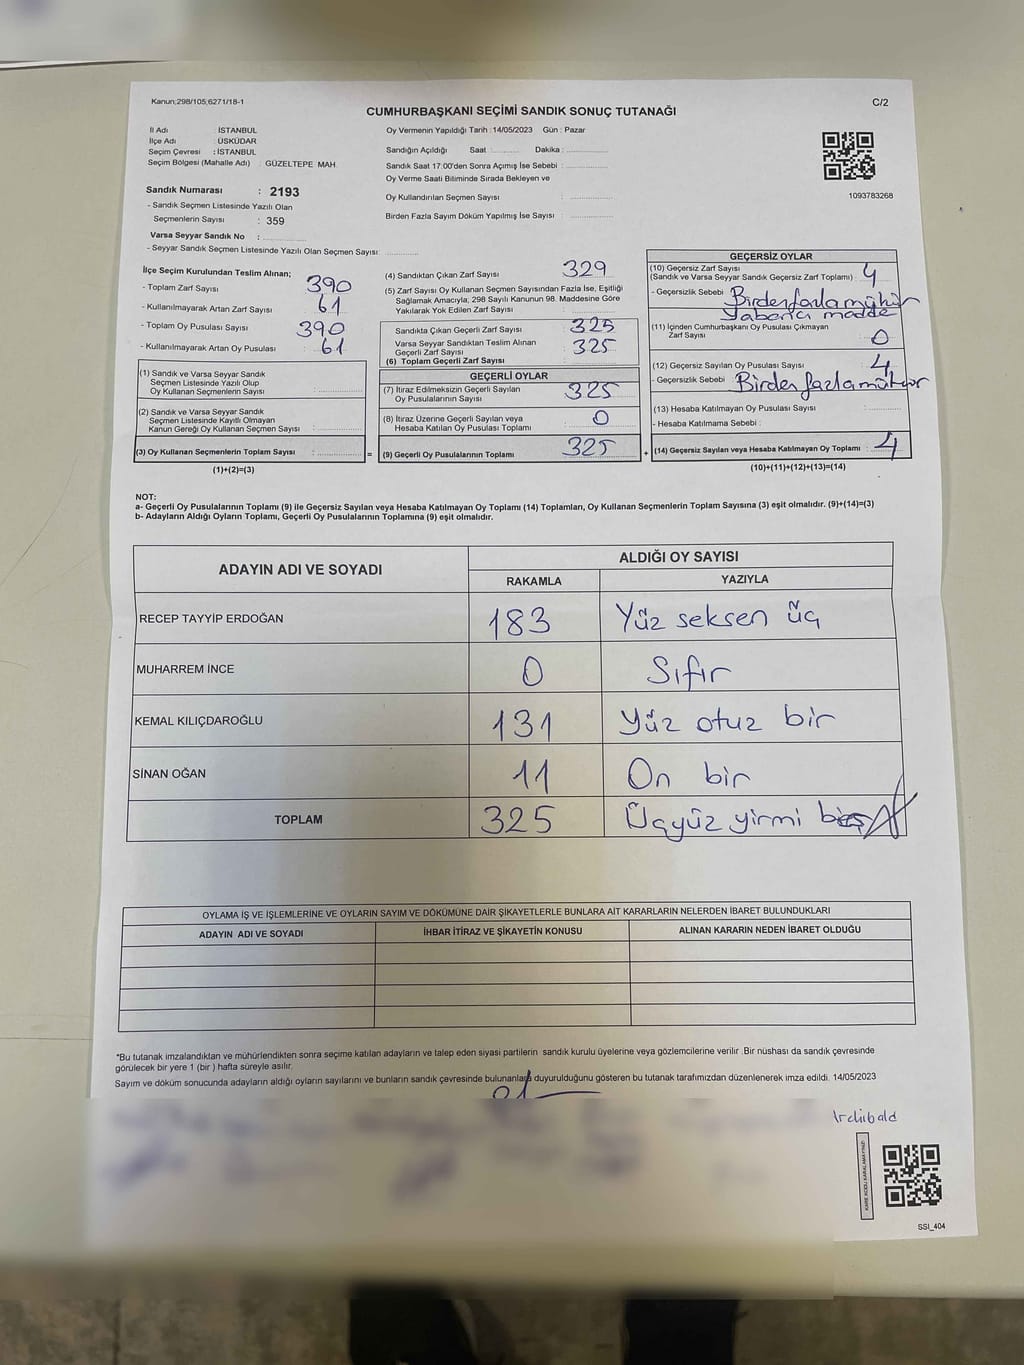 Kanun;298/105;6271/18-1
CUMHURBAŞKANI SEÇİMİ SANDIK SONUÇ TUTANAĞI
C/2
İl Adı : İSTANBUL
İlçe Adı : ÜSKÜDAR
Seçim Çevresi : İSTANBUL
Seçim Bölgesi (Mahalle Adı) : GÜZELTEPE MAH.
Sandık Numarası : 2193
- Sandık Seçmen Listesinde Yazılı Olan
Seçmenlerin Sayısı : 359
Varsa Seyyar Sandık No :
- Seyyar Sandık Seçmen Listesinde Yazılı Olan Seçmen Sayısı:
Oy Vermenin Yapıldığı Tarih :14/05/2023 Gün : Pazar
Sandığın Açıldığı Saat : Dakika :
Sandık Saat 17:00'den Sonra Açımış İse Sebebi :
Oy Verme Saati Bitiminde Sırada Bekleyen ve
Oy Kullandırılan Seçmen Sayısı :
Birden Fazla Sayım Döküm Yapılmış İse Sayısı :
1093783268
İlçe Seçim Kurulundan Teslim Alınan;
- Toplam Zarf Sayısı : 390
- Kullanılmayarak Artan Zarf Sayısı : 61
- Toplam Oy Pusulası Sayısı : 390
- Kullanılmayarak Artan Oy Pusulası : 61
(1) Sandık ve Varsa Seyyar Sandık
Seçmen Listesinde Yazılı Olup
Oy Kullanan Seçmenlerin Sayısı :
(2) Sandık ve Varsa Seyyar Sandık
Seçmen Listesinde Kayıtlı Olmayan
Kanun Gereği Oy Kullanan Seçmen Sayısı :
(3) Oy Kullanan Seçmenlerin Toplam Sayısı :
(1)+(2)=(3)
=
(4) Sandıktan Çıkan Zarf Sayısı : 329
(5) Zarf Sayısı Oy Kullanan Seçmen Sayısından Fazla İse, Eşitliği
Sağlamak Amacıyla, 298 Sayılı Kanunun 98. Maddesine Göre
Yakılarak Yok Edilen Zarf Sayısı :
Sandıkta Çıkan Geçerli Zarf Sayısı : 325
Varsa Seyyar Sandıktan Teslim Alınan
Geçerli Zarf Sayısı : 325
(6) Toplam Geçerli Zarf Sayısı :
GEÇERLİ OYLAR
(7) İtiraz Edilmeksizin Geçerli Sayılan
Oy Pusulalarının Sayısı : 325
(8) İtiraz Üzerine Geçerli Sayılan veya
Hesaba Katılan Oy Pusulası Toplamı : 0
(9) Geçerli Oy Pusulalarının Toplamı : 325
+
GEÇERSİZ OYLAR
(10) Geçersiz Zarf Sayısı
(Sandık ve Varsa Seyyar Sandık Geçersiz Zarf Toplamı) : 4
- Geçersizlik Sebebi : Birden fazla mühür
Yabancı madde
(11) İçinden Cumhurbaşkanı Oy Pusulası Çıkmayan
Zarf Sayısı : 0
(12) Geçersiz Sayılan Oy Pusulası Sayısı : 4
- Geçersizlik Sebebi : Birden fazla mühür
(13) Hesaba Katılmayan Oy Pusulası Sayısı :
- Hesaba Katılmama Sebebi :
(14) Geçersiz Sayılan veya Hesaba Katılmayan Oy Toplamı : 4
(10)+(11)+(12)+(13)=(14)
NOT:
a- Geçerli Oy Pusulalarının Toplamı (9) ile Geçersiz Sayılan veya Hesaba Katılmayan Oy Toplamı (14) Toplamları, Oy Kullanan Seçmenlerin Toplam Sayısına (3) eşit olmalıdır. (9)+(14)=(3)
b- Adayların Aldığı Oyların Toplamı, Geçerli Oy Pusulalarının Toplamına (9) eşit olmalıdır.
ADAYIN ADI VE SOYADI
ALDIĞI OY SAYISI
RAKAMLA YAZIYLA
RECEP TAYYİP ERDOĞAN 183 Yüz seksen üç
MUHARREM İNCE 0 Sıfır
KEMAL KILIÇDAROĞLU 131 Yüz otuz bir
SİNAN OĞAN 11 On bir
TOPLAM 325 Üçyüz yirmi beş
OYLAMA İŞ VE İŞLEMLERİNE VE OYLARIN SAYIM VE DÖKÜMÜNE DAİR ŞİKAYETLERLE BUNLARA AİT KARARLARIN NELERDEN İBARET BULUNDUKLARI
ADAYIN ADI VE SOYADI İHBAR İTİRAZ VE ŞİKAYETİN KONUSU ALINAN KARARIN NEDEN İBARET OLDUĞU
*Bu tutanak imzalandıktan ve mühürlendikten sonra seçime katılan adayların ve talep eden siyasi partilerin sandık kurulu üyelerine veya gözlemcilerine verilir .Bir nüshası da sandık çevresinde
görülecek bir yere 1 (bir ) hafta süreyle asılır.
Sayım ve döküm sonucunda adayların aldığı oyların sayılarını ve bunların sandık çevresinde bulunanlara duyurulduğunu gösteren bu tutanak tarafımızdan düzenlenerek imza edildi. 14/05/2023
Archibald
KARE KODU KARALAMAYINIZ!
SSI_404